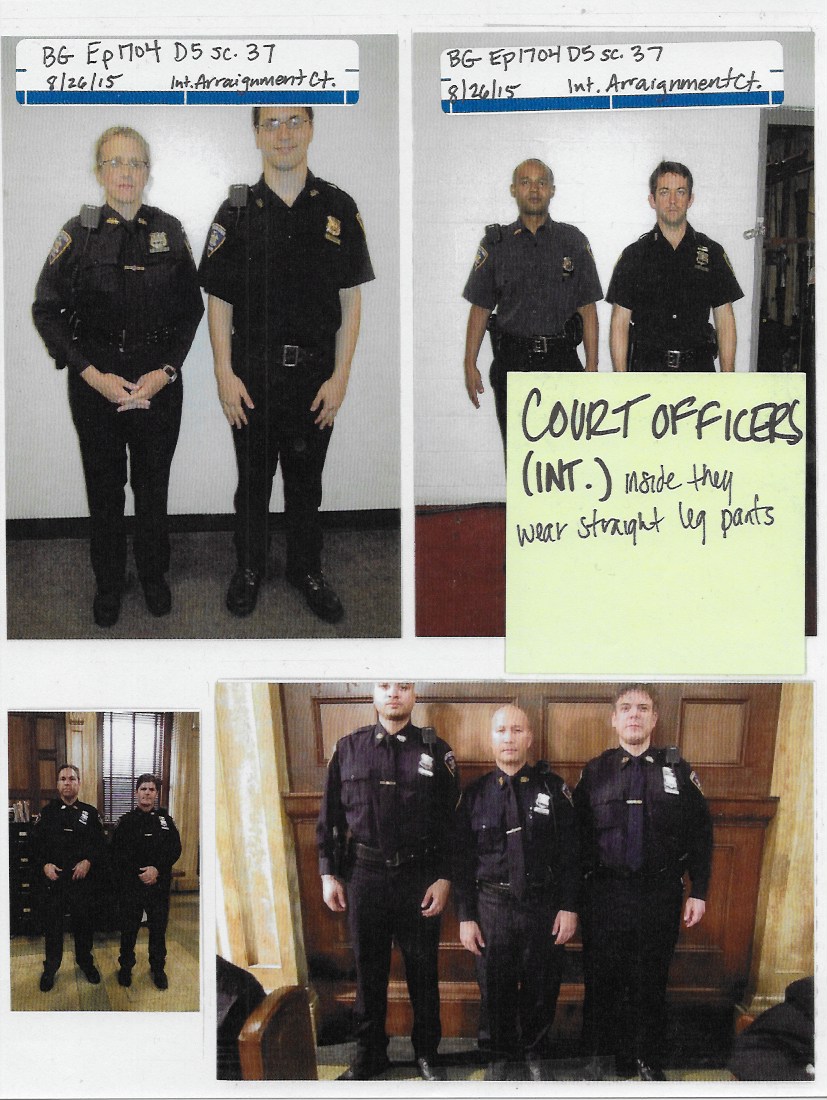 BG Ep1704 D5 sc. 37
8/26/15 Int. Arraignment Ct.
BG Ep1704 D5 sc. 37
8/26/15 Int. Arraignment Ct.
COURT OFFICERS
(INT.) inside they
wear straight leg pants